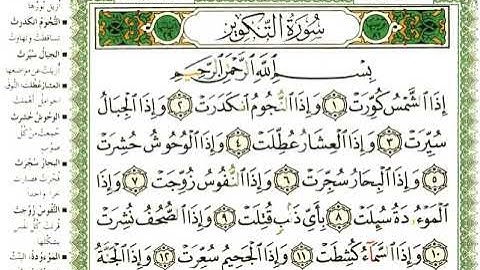 سُورَةُ التَّكْوِيرِ
بِسْمِ ٱللَّهِ ٱلرَّحْمَٰنِ ٱلرَّحِيمِ
إِذَا ٱلشَّمْسُ كُوِّرَتْ ١ وَإِذَا ٱلنُّجُومُ ٱنكَدَرَتْ ٢ وَإِذَا ٱلْجِبَالُ
سُيِّرَتْ ٣ وَإِذَا ٱلْعِشَارُ عُطِّلَتْ ٤ وَإِذَا ٱلْوُحُوشُ حُشِرَتْ
٥ وَإِذَا ٱلْبِحَارُ سُجِّرَتْ ٦ وَإِذَا ٱلنُّفُوسُ زُوِّجَتْ ٧ وَإِذَا
ٱلْمَوْءُۥدَةُ سُئِلَتْ ٨ بِأَىِّ ذَنۢبٍ قُتِلَتْ ٩ وَإِذَا ٱلصُّحُفُ نُشِرَتْ
١٠ وَإِذَا ٱلسَّمَآءُ كُشِطَتْ ١١ وَإِذَا ٱلْجَحِيمُ سُعِّرَتْ ١٢ وَإِذَا ٱلْجَنَّةُ
النُّجُومُ انكَدَرَتْ
تساقطت وتهاوت
الجِبَالُ سُيِّرَتْ
أزيلت عن مواضعها
العِشَارُ عُطِّلَتْ
الوُحُوشُ حُشِرَتْ
البِحَارُ سُجِّرَتْ
النُّفُوسُ زُوِّجَتْ
بشكلها
المَوْءُودَةُ